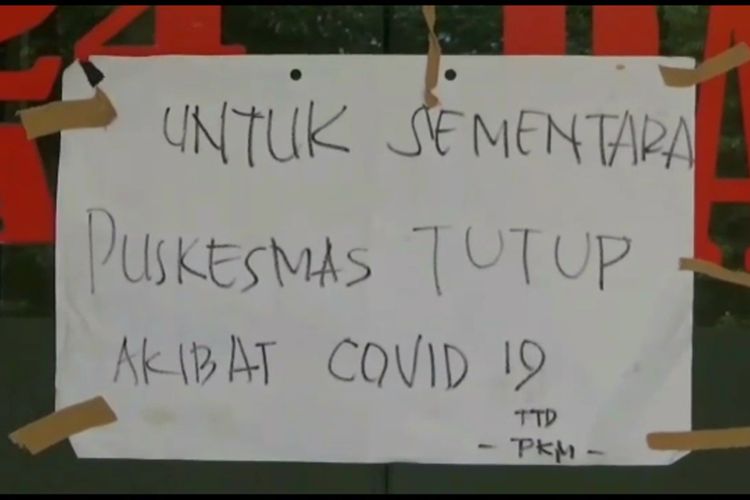 UNTUK SEMENTARA
PUSKESMAS TUTUP
AKIBAT COVID 19
TTD
- PKM -